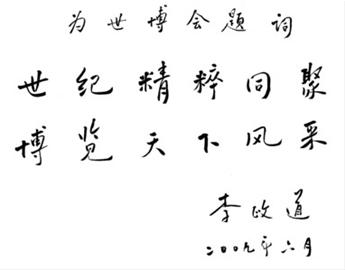 为世博会题词
世纪精粹同聚
博览天下风采
李政道
二〇〇九年六月